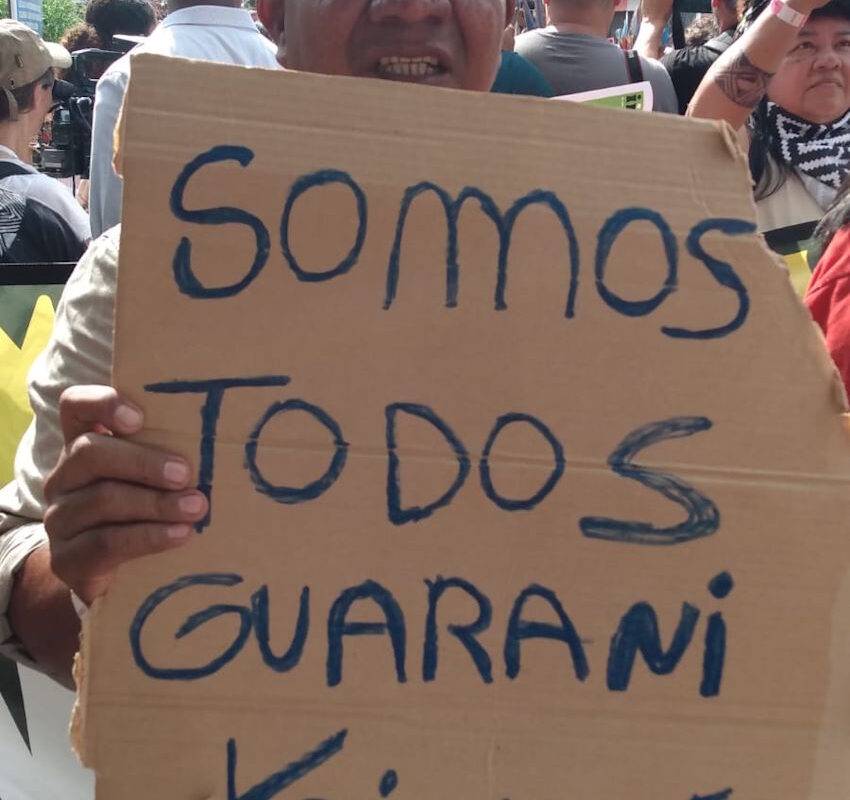 SOMOS
TODOS
GUARANI